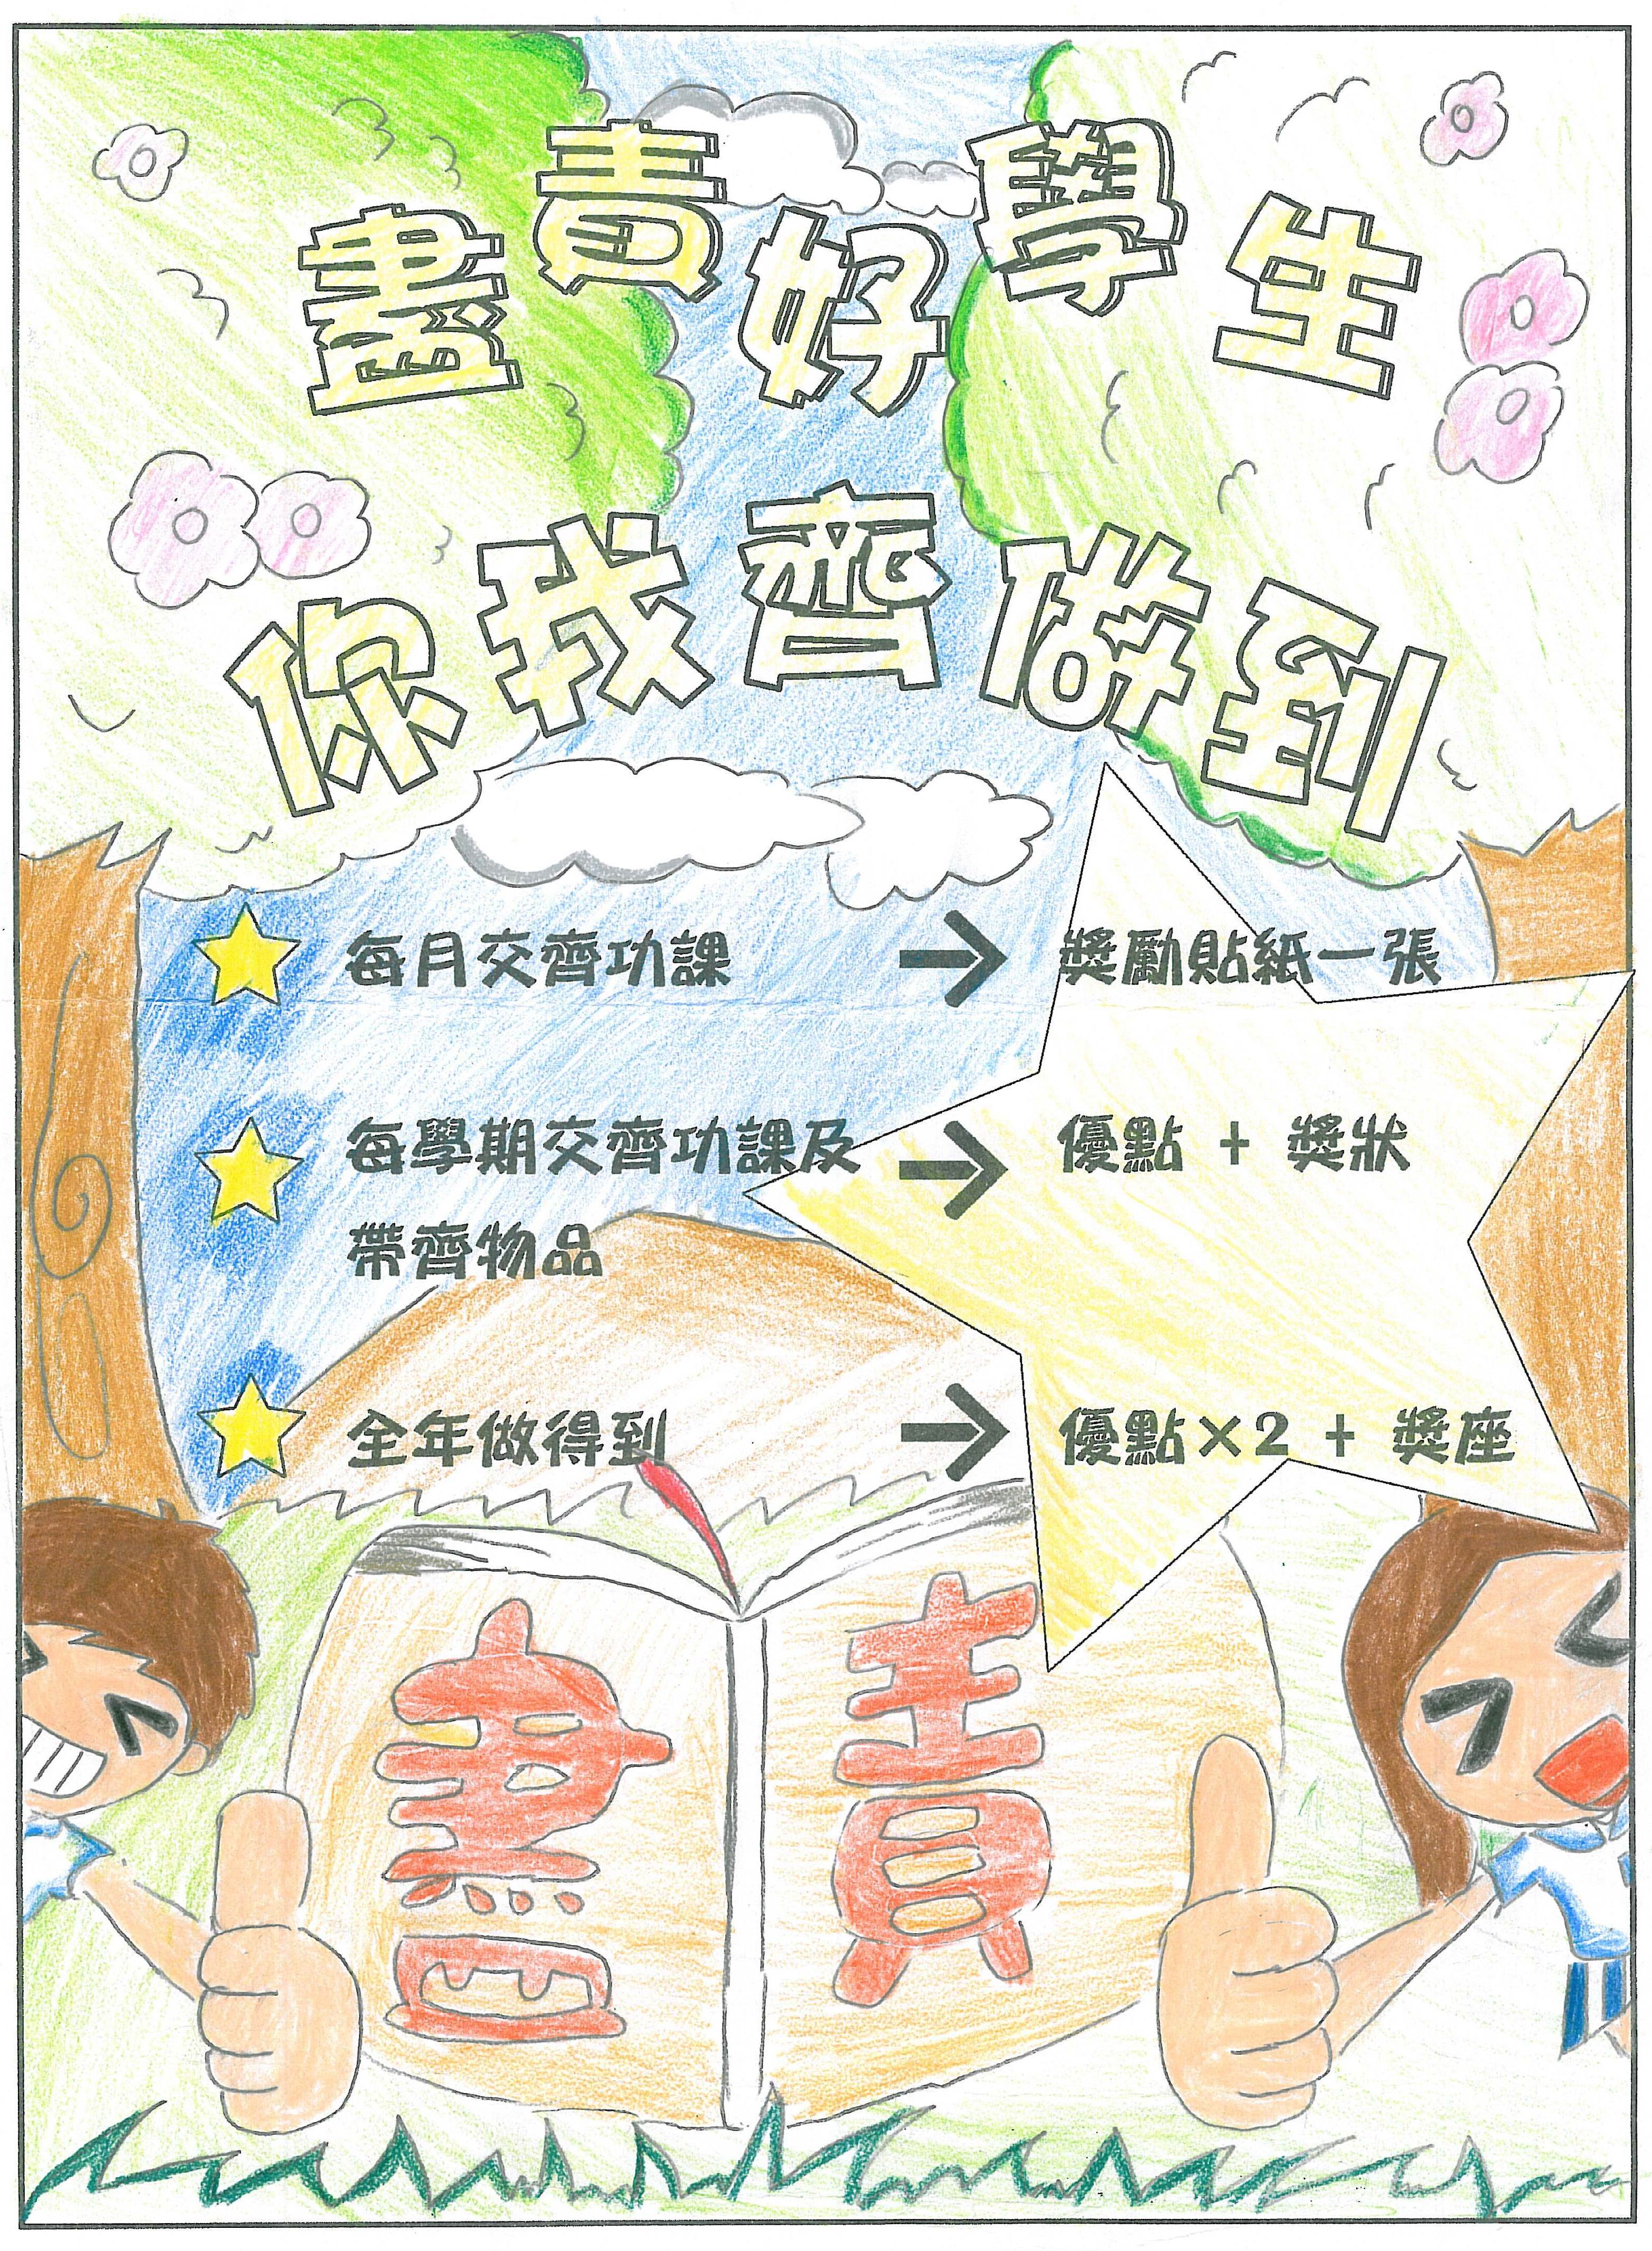 盡責好學生
你我齊做到
每月交齊功課 → 獎勵貼紙一張
每學期交齊功課及 → 優點 + 獎狀
帶齊物品
全年做得到 → 優點×2 + 獎座
盡責